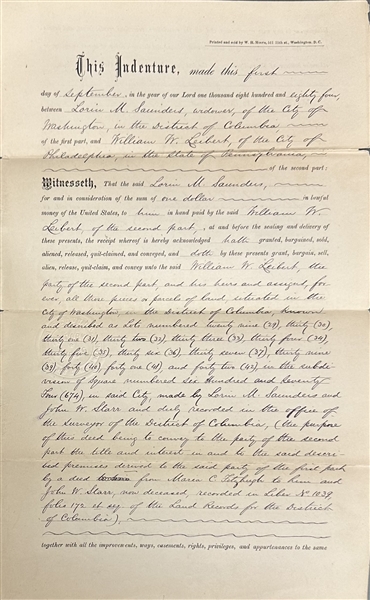 Printed and sold by W. H. Morrison, Washington, D. C.
This Indenture, made this first
day of September, in the year of our Lord one thousand eight hundred and eighty four,
between Lorin M. Saunders, widower, of the City of
Washington, in the District of Columbia
of the first part, and William W. Leibert, of the City of
Philadelphia, in the State of Pennsylvania,
of the second part:
Witnesseth, That the said Lorin M. Saunders,
for and in consideration of the sum of one dollar in lawful
money of the United States, to him in hand paid by the said William W.
Leibert, of the second part, at and before the sealing and delivery of
these presents, the receipt whereof is hereby acknowledged hath granted, bargained, sold,
aliened, released, quit-claimed, and conveyed, and doth by these presents grant, bargain, sell,
alien, release, quit-claim, and convey unto the said William W. Leibert, the
party of the second part, and his heirs and assigns, for-
ever, all those pieces or parcels of land, situated in the
City of Washington, in the District of Columbia, known
and described as lots numbered twenty nine (29), thirty (30),
thirty one (31), thirty two (32), thirty three (33), thirty four (34),
thirty five (35), thirty six (36), thirty seven (37), thirty nine
(39), forty (40), forty one (41), and forty two (42), in the subdi-
vision of Square numbered Six Hundred and Seventy
Four (674) in said City, made by Lorin M. Saunders and
John W. Starr and duly recorded in the office of
the surveyor of the District of Columbia, (the purpose
of this deed being to convey to the party of the second
part the title and interest in and to the said descri-
bed premises derived to the said party of the first part
by a deed from Maria C. Fitzhugh to him and
John W. Starr, now deceased, recorded in Liber No 1039,
folio 172 et seq. of the Land Records for the District
of Columbia),
together with all the improvements, ways, easements, rights, privileges, and appurtenances to the same